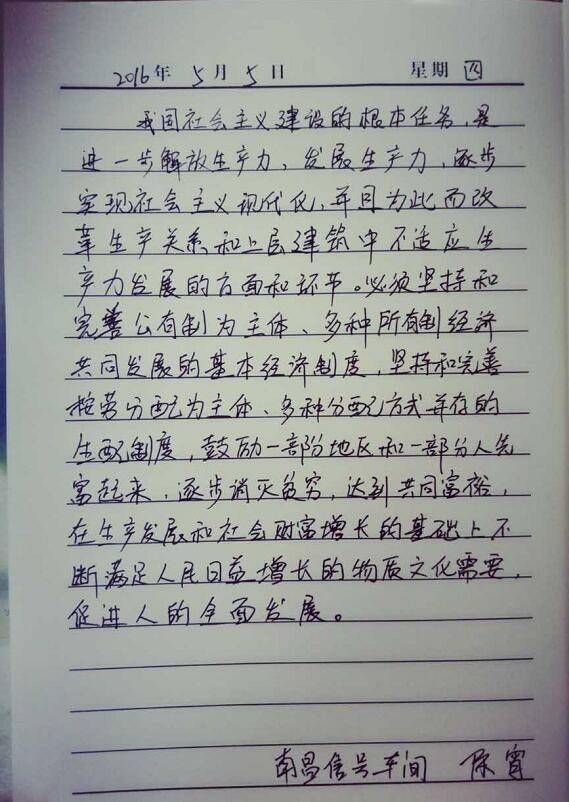 2016年 5月 5日 星期 四
我国社会主义建设的根本任务,是
进一步解放生产力,发展生产力,逐步
实现社会主义现代化,并且为此而改
革生产关系和上层建筑中不适应生
产力发展的方面和环节。必须坚持和
完善公有制为主体、多种所有制经济
共同发展的基本经济制度,坚持和完善
按劳分配为主体、多种分配方式并存的
分配制度,鼓励一部份地区和一部分人先
富起来,逐步消灭贫穷,达到共同富裕,
在生产发展和社会财富增长的基础上不
断满足人民日益增长的物质文化需要,
促进人的全面发展。
南昌信号车间 陈宵